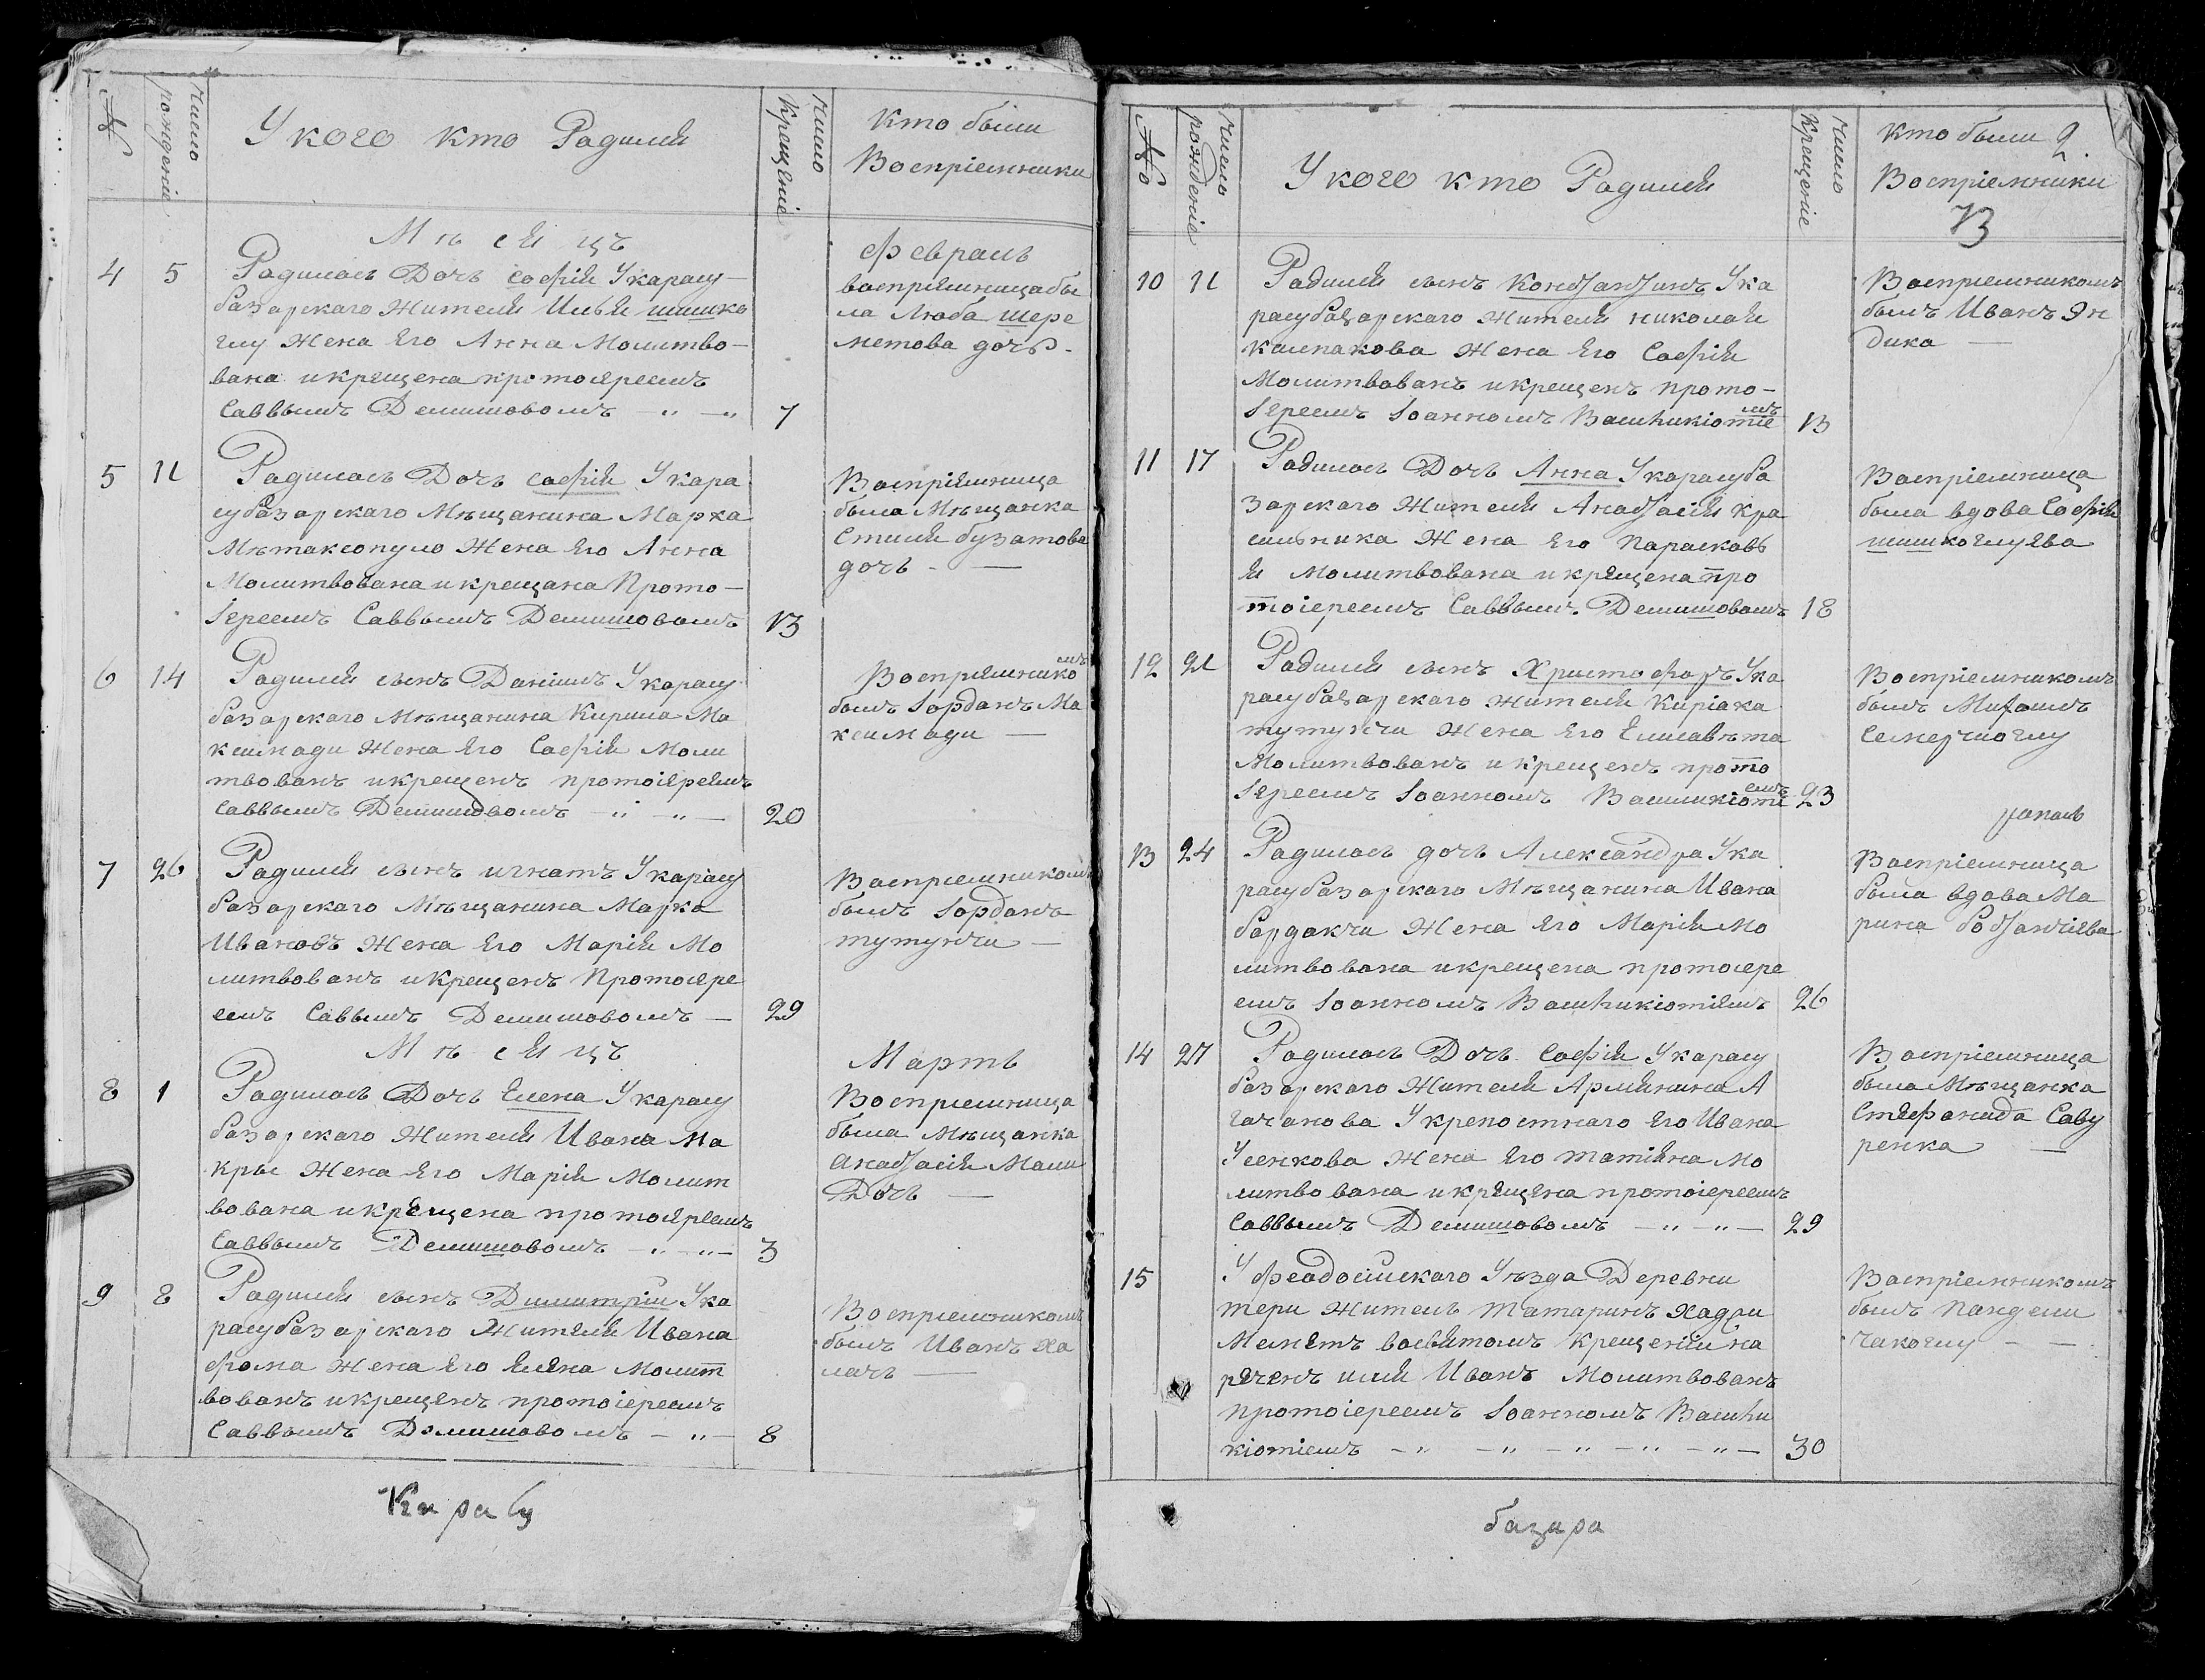 №
число рождение
У кого кто Родился
число Крещение
Кто были
Воспріемники
М ѣ с я ц ъ
февраль
4 5 Родилась Дочь софія У карасу-
базарскаго Жителя Ильи шишко
глу Жена Его Анна Молитво-
вана и крещена протоіереемъ
Саввымъ Демишовомъ — „ — „ 7
воспріемница бы
ла Люба шере
метова дочь -
5 11 Родилась Дочь софія У кара
субазарскаго Мѣщанина Марка
Мѣтаксопуло Жена Его Анна
Молитвована и крещана Прото-
Іереемъ Саввымъ Демишовомъ 13
Воспріемница
была Мѣщанка
Стиліи бузатова
дочь - —
6 14 Родился сынъ Даніилъ У карасу
базарскаго Мѣщанина Кирила Ма
ксимади Жена Его Софія Моли
твованъ и крещенъ протоіереемъ
Саввымъ Демишовомъ — „ — „ — 20
Воспріемникомъ
былъ Іорданъ Ма
ксимади —
7 26 Родился сынъ игнатъ У карасу
базарскаго Мѣщанина Марко
Ивановъ Жена Его Марія Мо
литвованъ и крещенъ Протоіере
емъ Савымъ Демишовомъ — 29
Воспріемникомъ
былъ Іорданъ
тутунчи —
М ѣ с я ц ъ
Мартъ
8 1 Родилась Дочь Елена У карасу
базарскаго Жителя Ивана Ма
кры Жена Его Марія Молит
вована и крещена протоіереемъ
Саввымъ Демишовомъ — „ — „ — 3
Воспріемница
была Мѣщанка
Анастасія Мали
Дочь —
9 8 Родился сынъ Димитрій У ка
расубазарскаго Жителя Ивана
фома Жена Его Елена Молит
вованъ и крещенъ протоіереемъ
Саввымъ Демишовомъ — „ — 8
Воспріемникомъ
былъ Иванъ Ха
лачь —
Карасу
№
число рожденіе
У кого кто Родился
число Крещеніе
Кто были 2
Воспріемники
13
10 11 Родился сынъ Константинъ У ка
расубазарскаго Жителя николая
калпакова Жена Его Софія
Молитвованъ и крещенъ прото-
Іереемъ Іоанномъ Вашикіотіемъ 13
Воспріемникомъ
былъ Иванъ Эн
дика —
11 17 Родилась Дочь Анна У карасуба
зарскаго Жителя Анастасія Кра
сильника Жена Его Парасковь
я Молитвована и крещена про
тоіереемъ Саввымъ Демишовомъ 18
Воспріемница
была вдова Софія
шишкоглуева
12 21 Родился сынъ Христофоръ У ка
расубазарскаго Жителя Киріака
тутунчи Жена Его Елисавѣта
Молитвованъ и крещенъ прото
Іереемъ Іоанномъ Вашикіотіемъ 23
Воспріемникомъ
былъ Михаилъ
Семерчиоглу
13 24 Родилась дочь Александра У ка
расубазарскаго Мѣщанина Ивана
бардакчи Жена Его Марія Мо
литвована и крещена протоіере
емъ Іоанномъ Вашикіотіемъ 26
Воспріемница
была вдова Ма
рина бостанчіева
14 27 Родилась Дочь Софія У карасу
базарскаго Жителя Армянина А
гачанова У крепостнаго Его Ивана
Усенкова Жена Его татіяна Мо
литвована и крещена протоіереемъ
Саввымъ Демишовомъ — „ — „ — 29
Воспріемница
была Мѣщанка
Стефанида Саву
ренка —
15 У феодосійскаго Уѣзда Деревни
тери Житель татаринъ хаджи
Мемѣтъ во святомъ Крещеніи на
реченъ имя Иванъ Молитвованъ
протоіереемъ Іоанномъ Ваши
кіотіемъ — „ — „ — „ — „ — „ — 30
Воспріемникомъ
былъ Пандели
чакоглу — —
базара